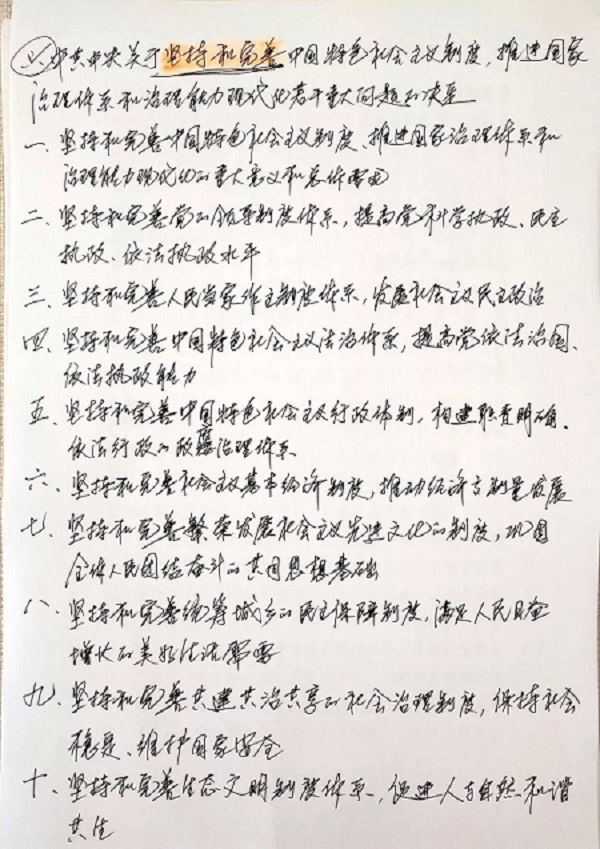 六、中共中央关于坚持和完善中国特色社会主义制度,推进国家
治理体系和治理能力现代化若干重大问题的决定
一、坚持和完善中国特色社会主义制度、推进国家治理体系和
治理能力现代化的重大意义和总体要求
二、坚持和完善党的领导制度体系,提高党科学执政、民主
执政、依法执政水平
三、坚持和完善人民当家作主制度体系,发展社会主义民主政治
四、坚持和完善中国特色社会主义法治体系,提高党依法治国、
依法执政能力
五、坚持和完善中国特色社会主义行政体制,构建职责明确、
依法行政的政府治理体系
六、坚持和完善社会主义基本经济制度,推动经济高质量发展
七、坚持和完善繁荣发展社会主义先进文化的制度,巩固
全体人民团结奋斗的共同思想基础
八、坚持和完善统筹城乡的民生保障制度,满足人民日益
增长的美好生活需要
九、坚持和完善共建共治共享的社会治理制度,保持社会
稳定、维护国家安全
十、坚持和完善生态文明制度体系,促进人与自然和谐
共生